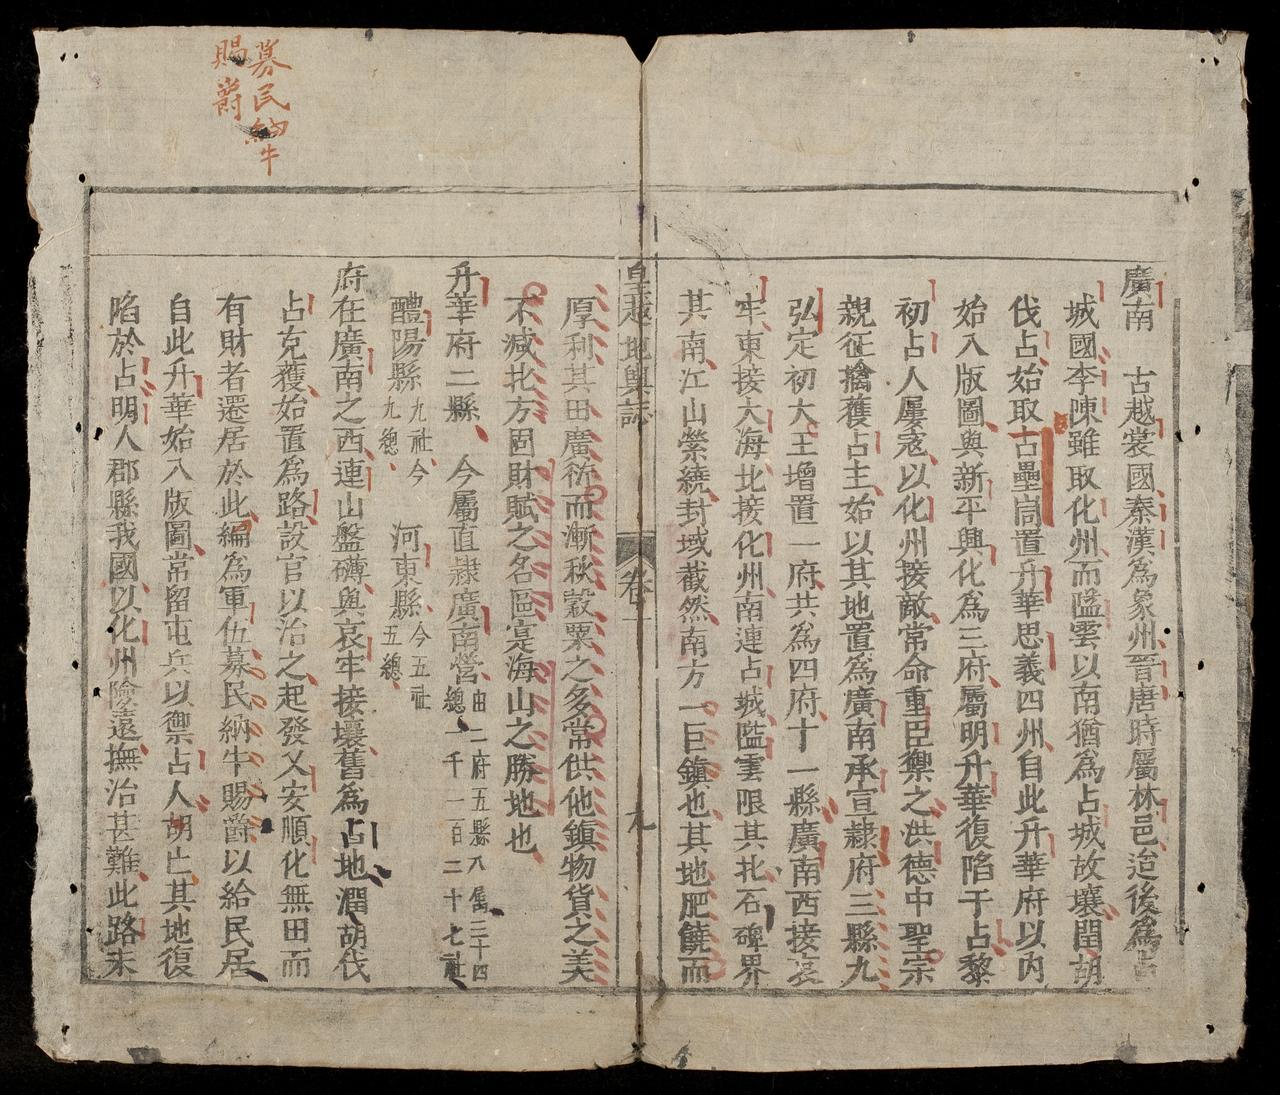 廣南　古越裳國秦漢為象州晉唐時屬林邑迨後為占
城國李陳雖取化州而隘雲以南猶為占城故壤閏胡
伐占始取古壘峝置升華思義四州自此升華府以內
始入版圖與新平興化為三府屬明升華復陷于占黎
初占人屢寇以化州接敵常命重臣禦之洪德中聖宗
親征擒獲占主始以其地置為廣南承宣隸府三縣九
弘定初大王增置一府共為四府十一縣廣南西接哀
牢東接大海北接化州南連占城隘雲限其北石碑界
其南江山縈繞封域截然南方一巨鎮也其地肥饒而
皇越地輿誌　卷一　九
厚利其田廣衍而漸秋穀粟之多常供他鎮物貨之美
不減北方固財賦之名區寔海山之勝地也
升華府二縣　今屬直隸廣南營由二府五縣八雋三十四
總一千一百二十七社
醴陽縣九社今
九總　河東縣今五社
五總
府在廣南之西連山盤礡與哀牢接壤舊為占地潤胡伐
占克獲始置為路設官以治之起發又安順化無田而
有財者遷居於此編為軍伍募民納牛賜爵以給民居
自此升華始入版圖常留屯兵以禦占人胡亡其地復
陷於占明人郡縣我國以化州險遠撫治甚難此路未
募民納牛
賜爵